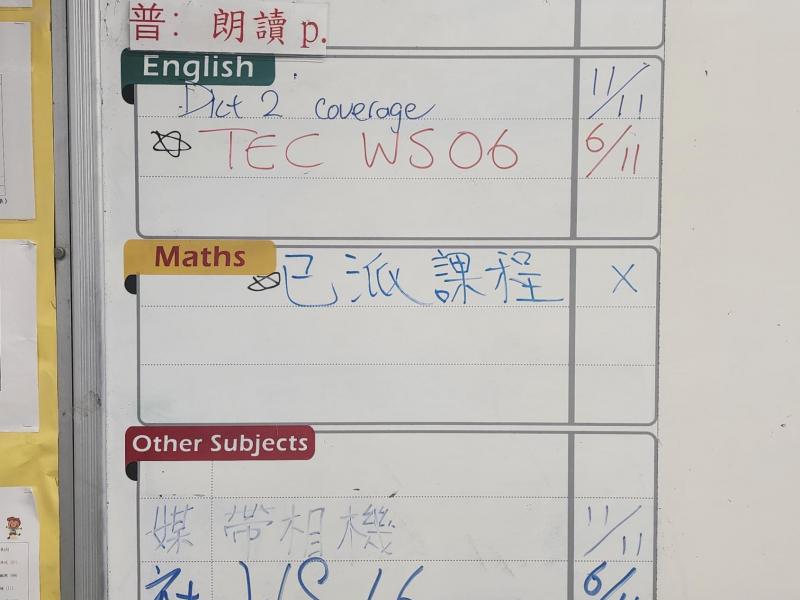 普：朗讀 p.
English
Dict 2 coverage 11/11
TEC WS06 6/11
Maths
已派課程 X
Other Subjects
媒 帶相機 11/11
社 WS 16 6/11